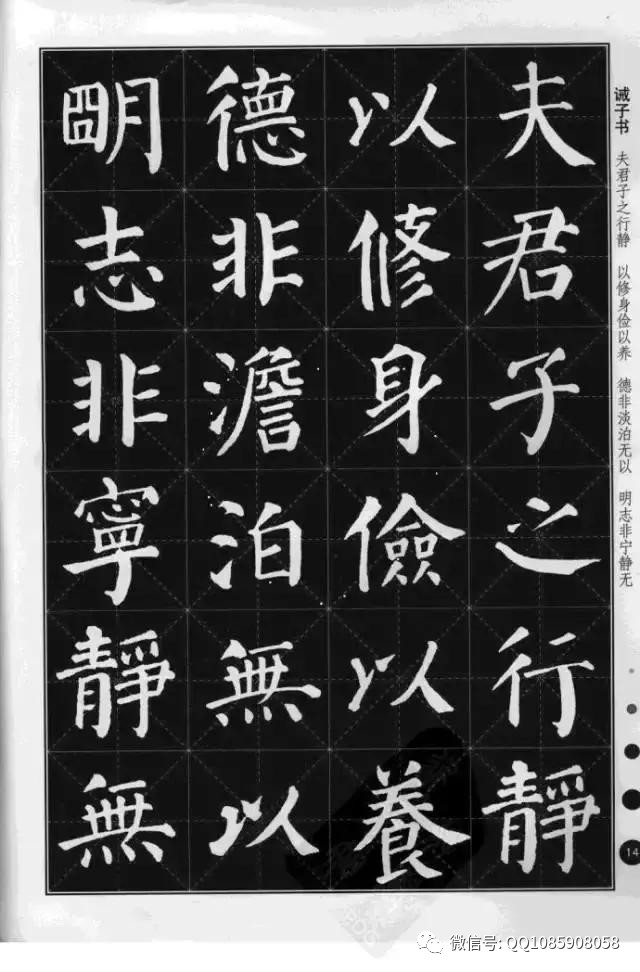 夫君子之行靜
以修身儉以養
德非澹泊無以
明志非寧靜無
诫子书 夫君子之行静 以修身俭以养 德非淡泊无以 明志非宁静无
14
微信号: QQ1085908058